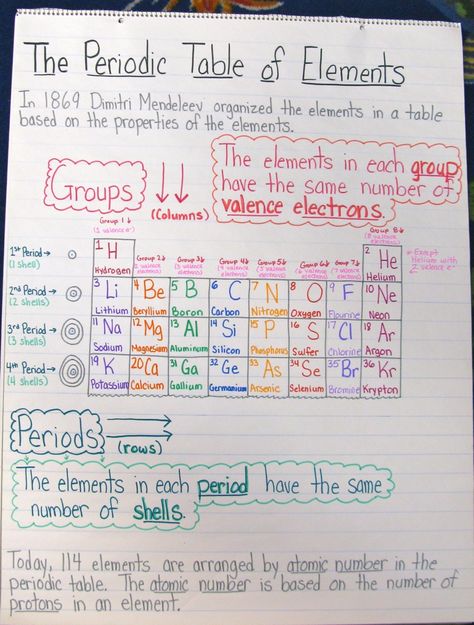 The Periodic Table of Elements
In 1869 Dimitri Mendeleev organized the elements in a table
based on the properties of the elements.
Groups
(columns)
The elements in each group
have the same number of
valence electrons.
Group 1↓
(1 valence e⁻)
Group 2↓
(2 valence electrons)
Group 3↓
(3 valence electrons)
Group 4↓
(4 valence electrons)
Group 5↓
(5 valence electrons)
Group 6↓
(6 valence electrons)
Group 7↓
(7 valence electrons)
Group 8↓
(8 valence electrons)
* Except Helium with 2 valence e⁻
1st Period →
(1 shell)
1 H Hydrogen
2 He Helium
2nd Period →
(2 shells)
3 Li Lithium
4 Be Beryllium
5 B Boron
6 C Carbon
7 N Nitrogen
8 O Oxygen
9 F Flourine
10 Ne Neon
3rd Period →
(3 shells)
11 Na Sodium
12 Mg Magnesium
13 Al Aluminum
14 Si Silicon
15 P Phosphorus
16 S Sulfer
17 Cl Chlorine
18 Ar Argon
4th Period →
(4 shells)
19 K Potassium
20 Ca Calcium
31 Ga Gallium
32 Ge Germanium
33 As Arsenic
34 Se Selenium
35 Br Bromine
36 Kr Krypton
Periods
(rows)
The elements in each period have the same
number of shells.
Today, 114 elements are arranged by atomic number in the
periodic table. The atomic number is based on the number of
protons in an element.